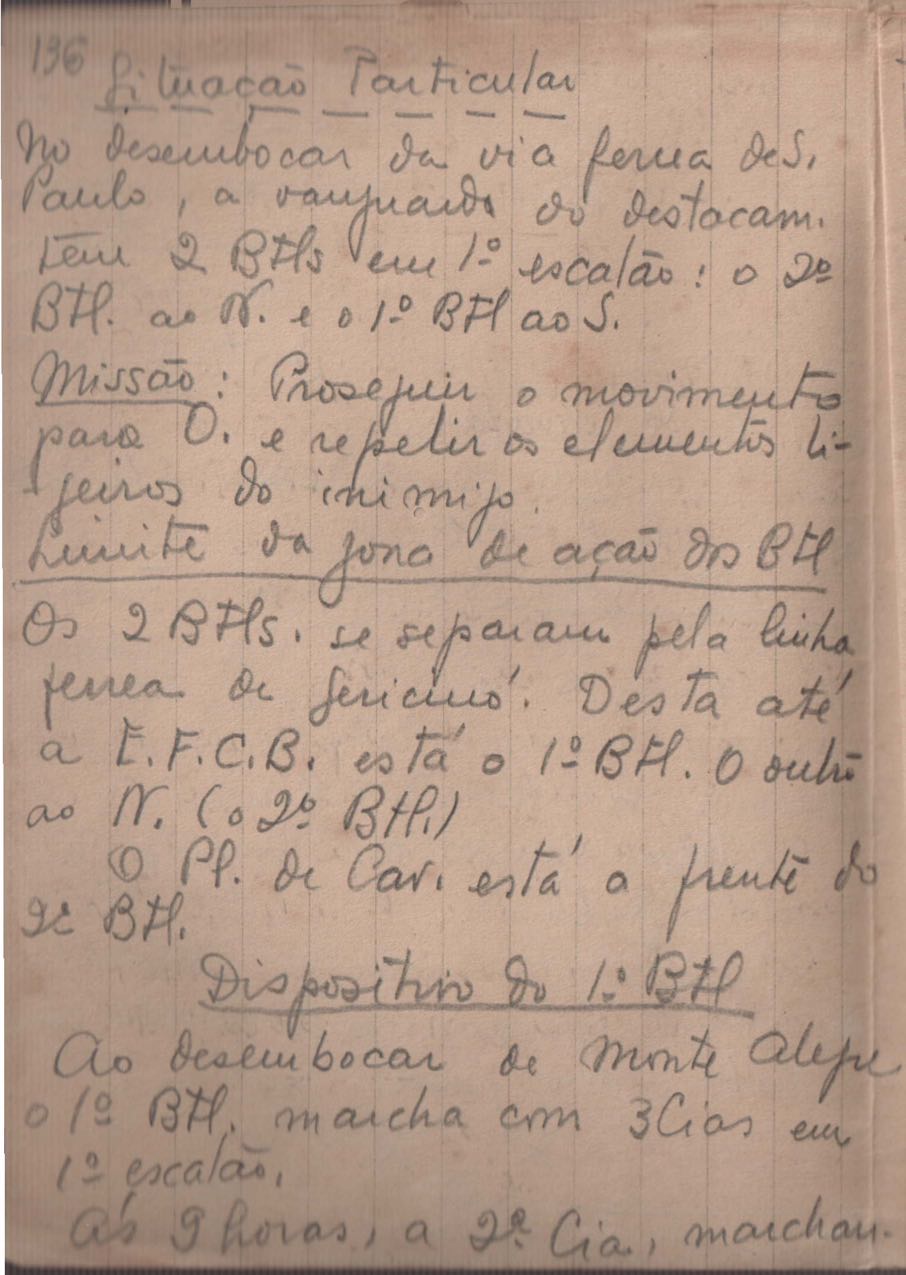 136
Situação Particular
No desembocar da via ferrea de S.
Paulo, a vanguarda do destacam.
têm 2 Btls em 1º escalão: o 2º
Btl. ao N. e o 1º Btl ao S.
Missão: Proseguir o movimento
para O. e repelir os elementos li-
geiros do inimigo.
Limite da zona de ação dos Btl
Os 2 Btls. se separam pela linha
ferrea de Gericinó. Desta até
a E.F.C.B. está o 1º Btl. O outro
ao N. (o 2º Btl.)
O Pl. de Cav. está a frente do
2º Btl.
Dispositivo do 1º Btl
Ao desembocar de Monte Alegre
o 1º Btl. marcha com 3 Cias em
1º escalão.
Ás 9 horas, a 2ª Cia, marchan-